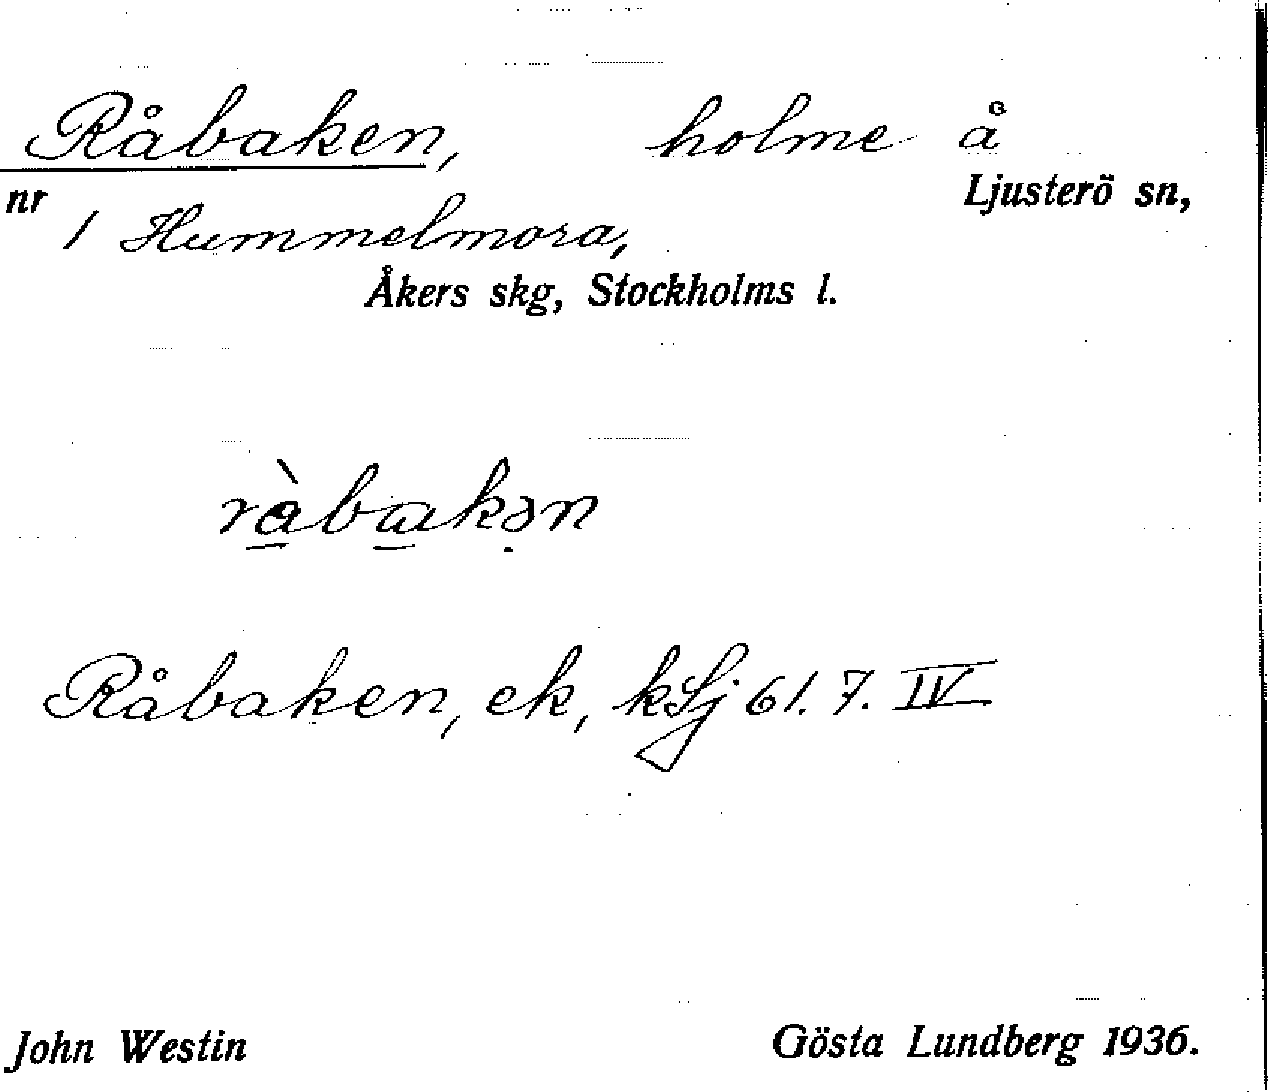 Råbaken, holme å
Ljusterö sn,
nr 1 Hummelmora,
Åkers skg, Stockholms l.
ràbakən
Råbaken, ek, kLj 61. 7. IV
John Westin Gösta Lundberg 1936.